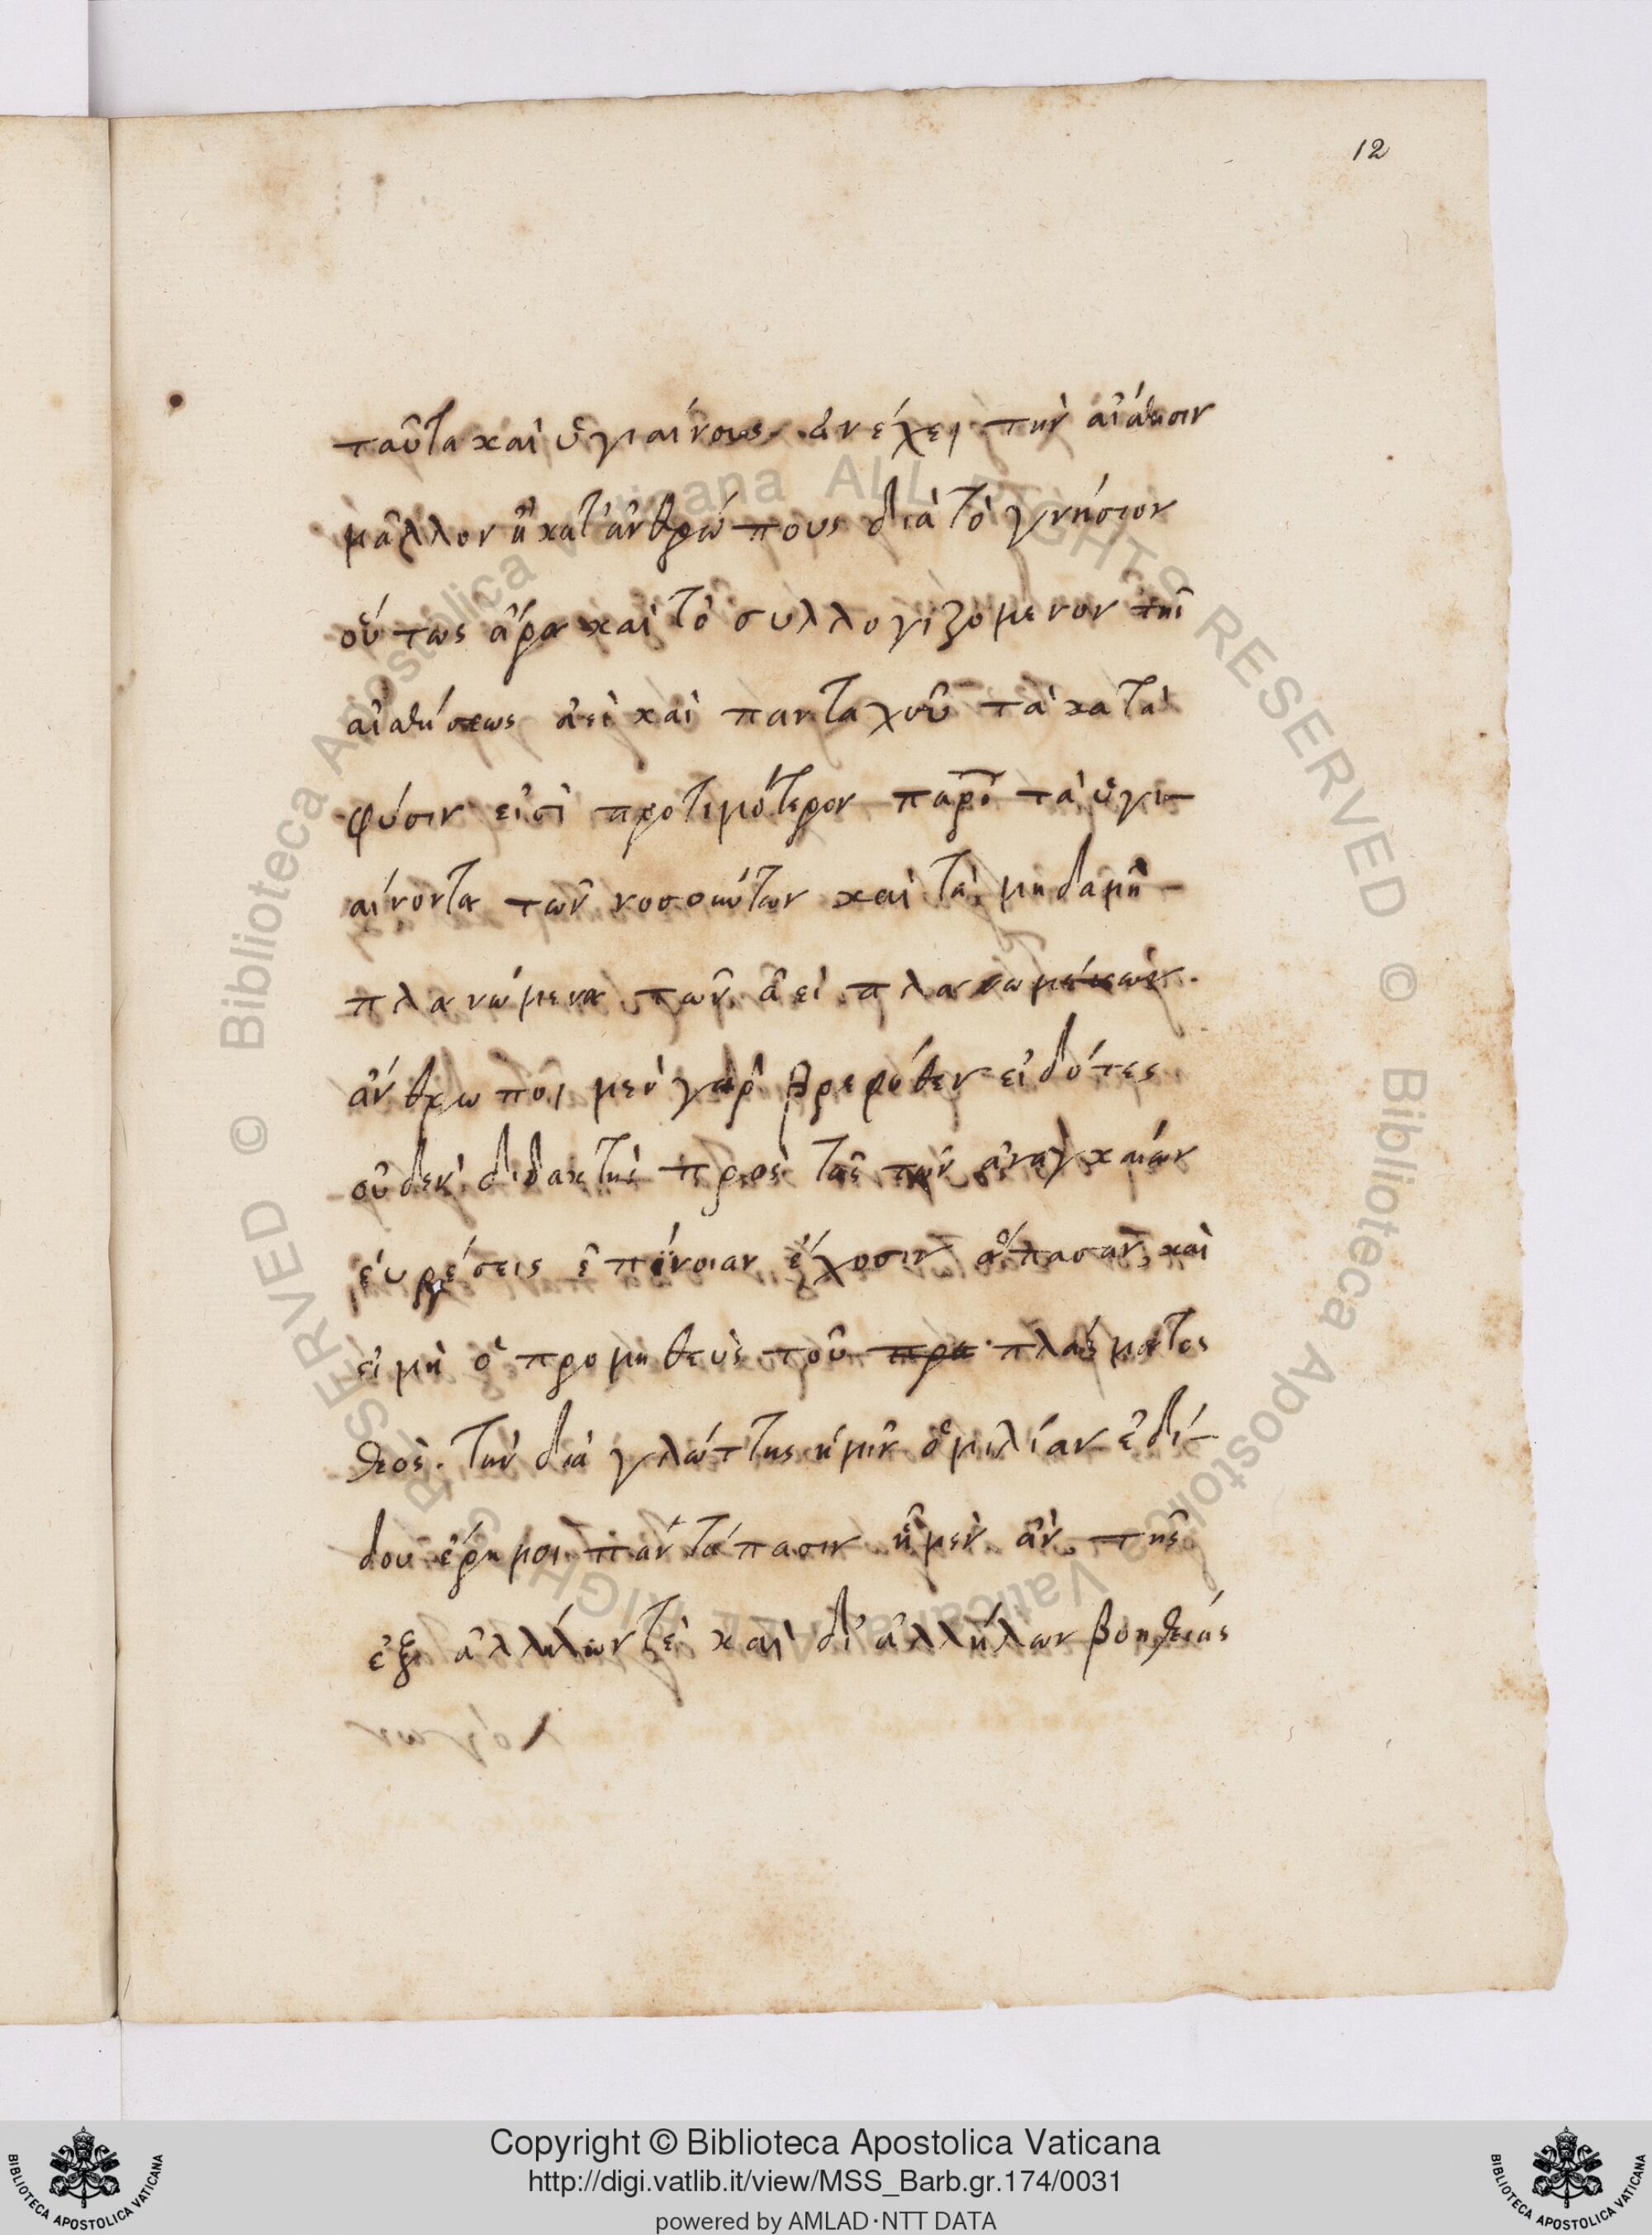 12
ταῦτα καὶ ὑγιαίνους ἀνέχει τὴν αἴσθησιν
μᾶλλον ἢ κατ' ἀνθρώπους διὰ τὸ γνήσιον
οὕτως ἄρα καὶ τὸ συλλογιζόμενον τῆι
αἰσθήσεως ἀεὶ καὶ πανταχοῦ τὰ κατὰ
φύσιν εἰσὶ προτιμότερον παρὸ τὰ ὑγι-
αίνοντα τῶν νοσούντων καὶ τὰ μηδαμῆ-
πλανώμενα τῶν ἀεὶ πλανωμένων.
ἄνθρωποι μὲν γὰρ βρεφόθεν εἰδότες
οὐδὲν διδακτῆς πρὸς τὰς τῶν ἀναγκαίων
εὑρέσεις ἐπίνοιαν ἔχοσιν ἅπασαν, καὶ
εἰ μὴ ὁ προμηθεὺς τοῦ πρα πλάσματος
θεὸς. τὴν διὰ γλώττης ἡμῖν ὁμιλίαν ἐδί-
δου ἔρημοι παντάπασιν ἦμεν ἂν τῆς
ἐξ ἀλλήλων τὲ καὶ δι' ἀλλήλων βοηθείας
Copyright © Biblioteca Apostolica Vaticana
http://digi.vatlib.it/view/MSS_Barb.gr.174/0031
powered by AMLAD·NTT DATA
BIBLIOTECA APOSTOLICA VATICANA
BIBLIOTECA APOSTOLICA VATICANA
© Biblioteca Apostolica Vaticana ALL RIGHTS RESERVED © Biblioteca Apostolica Vaticana ALL RIGHTS RESERVED